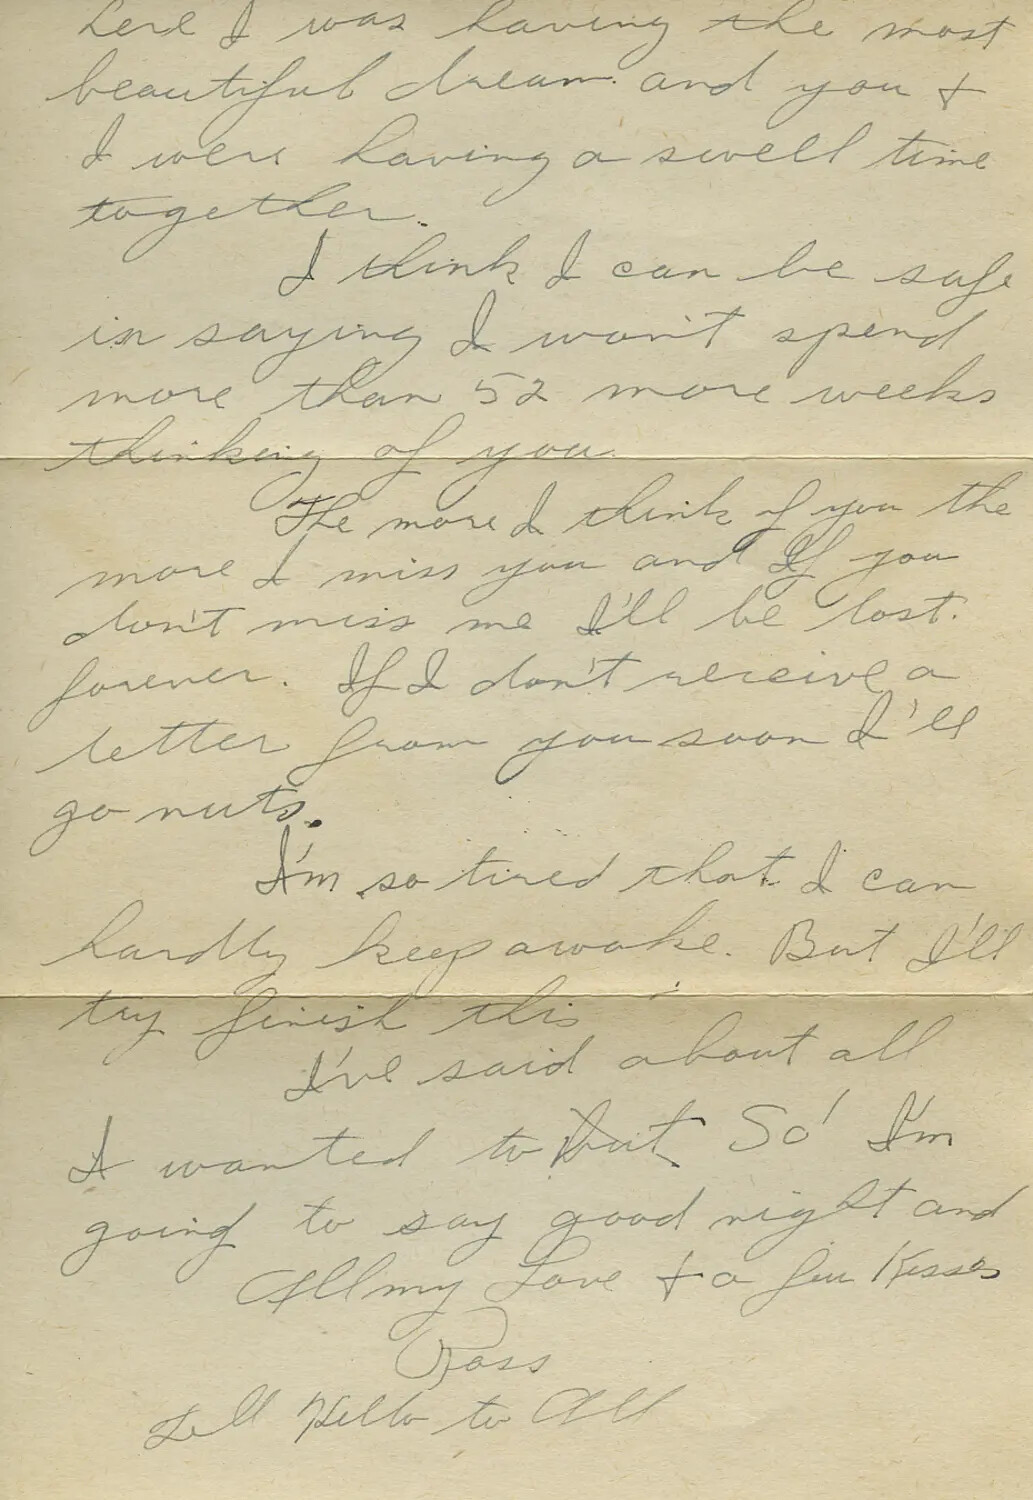 here I was having the most
beautiful dream. and you +
I were having a swell time
together.
I think I can be safe
in saying I won't spend
more than 52 more weeks
thinking of you.
The more I think of you the
more I miss you and If you
don't miss me I'll be lost.
forever. If I don't receive a
letter from you soon I'll
go nuts.
I'm so tired that I can
hardly keep awake. But I'll
try finish this
I've said about all
I wanted to but So! I'm
going to say good night and
All my Love + a few Kisses
Ross
Tell Hello to All